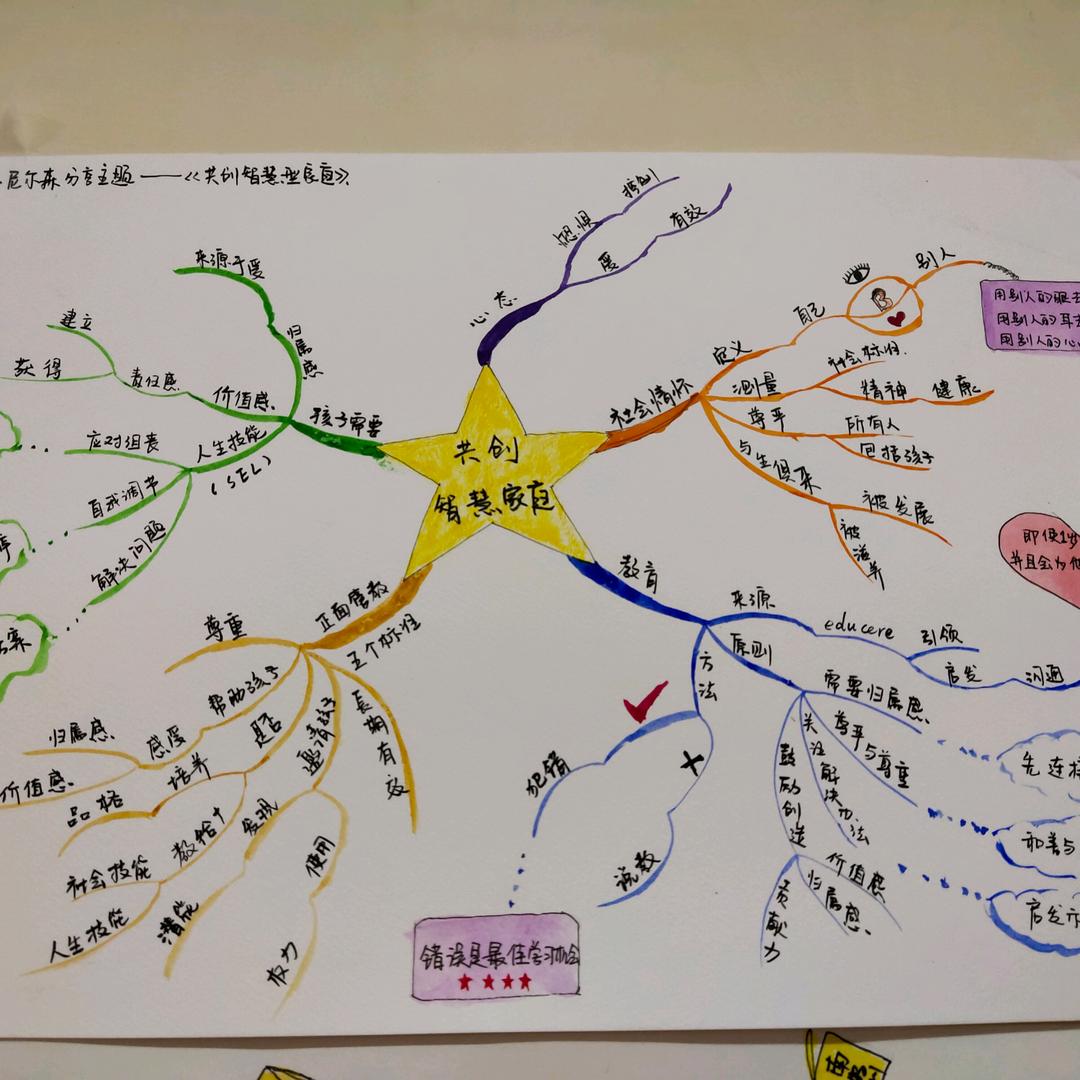 尼尔森分享主题——《共创智慧型家庭》
共创
智慧家庭
心态
恐惧
控制
爱
有效
社会情怀
定义
自己
别人
用别人的眼去
用别人的耳去
用别人的心
测量
社会标准.
精神
健康
尊严
所有人
包括孩子
与生俱来
被发展
被滋养
即使1岁
并且会为他
教育
来源
educere
引领
启发
沟通
原则
需要归属感.
先连接
尊严与尊重
和善与
关注解决办法
启发
鼓励创造
价值感
归属感.
贡献力
方法
犯错
说教
错误是最佳学习机会
正面管教
五个标准
尊重
帮助孩子
感受
归属感.
价值感.
是否
培养
品格
教给
社会技能
人生技能
邀请孩子
发现
潜能
使用
权力
长期有效
孩子需要
归属感
来源于爱
价值感.
责任感
建立
获得
人生技能
(SEL)
应对沮丧
自我调节
解决问题